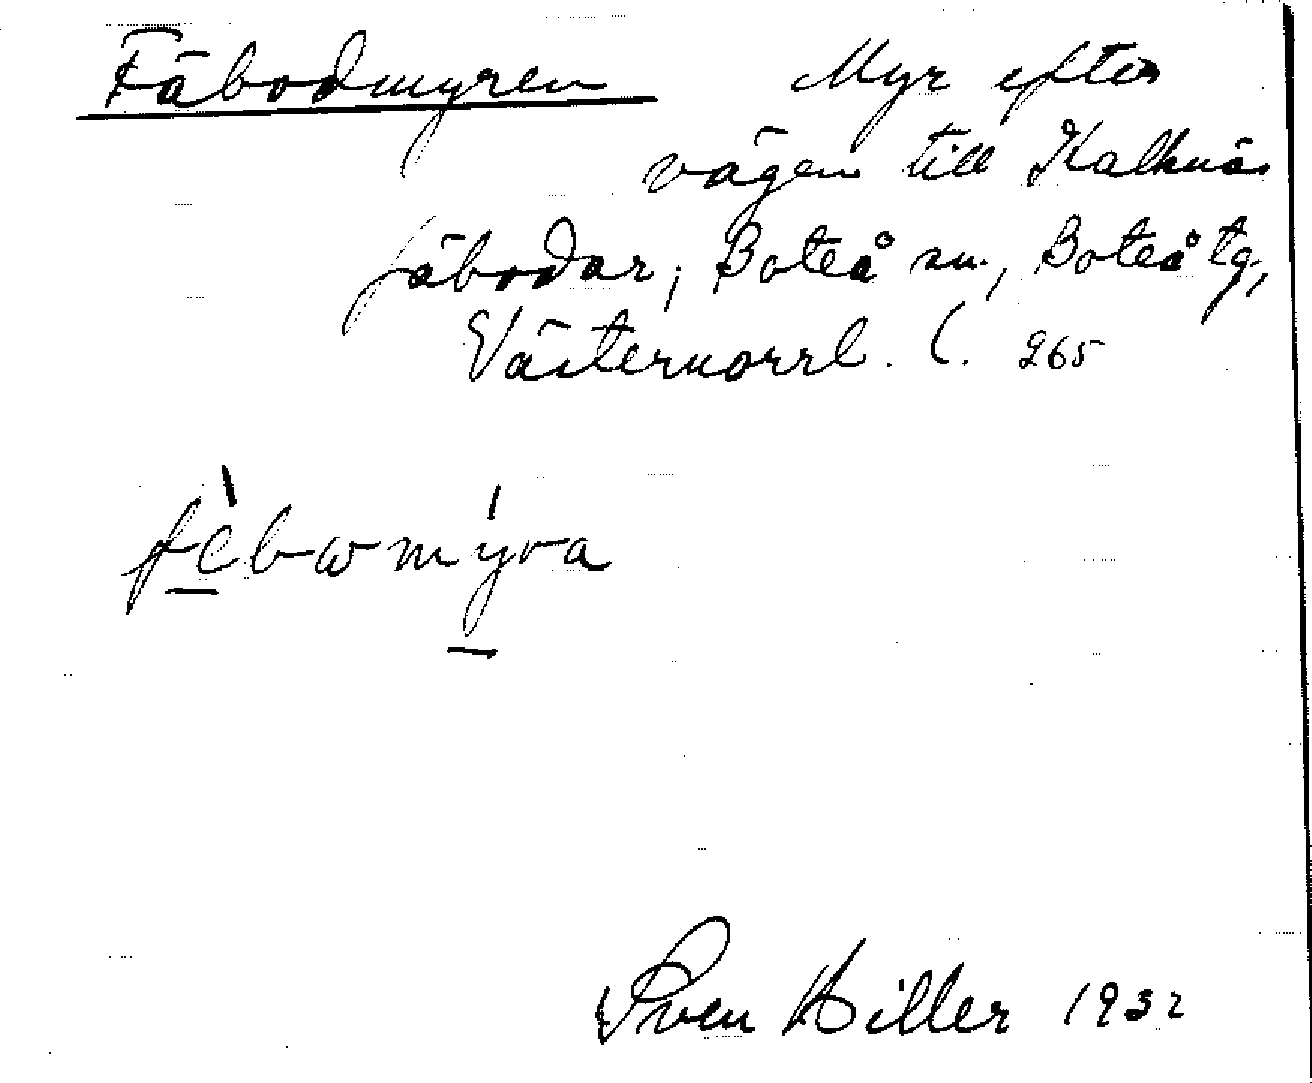 Fäbodmyren Myr efter
vägen till Kalknäs
fäbodar, Boteå sn., Boteå tg,
Västernorrl. l. 265
fèbωmýra
Sven Hiller 1932